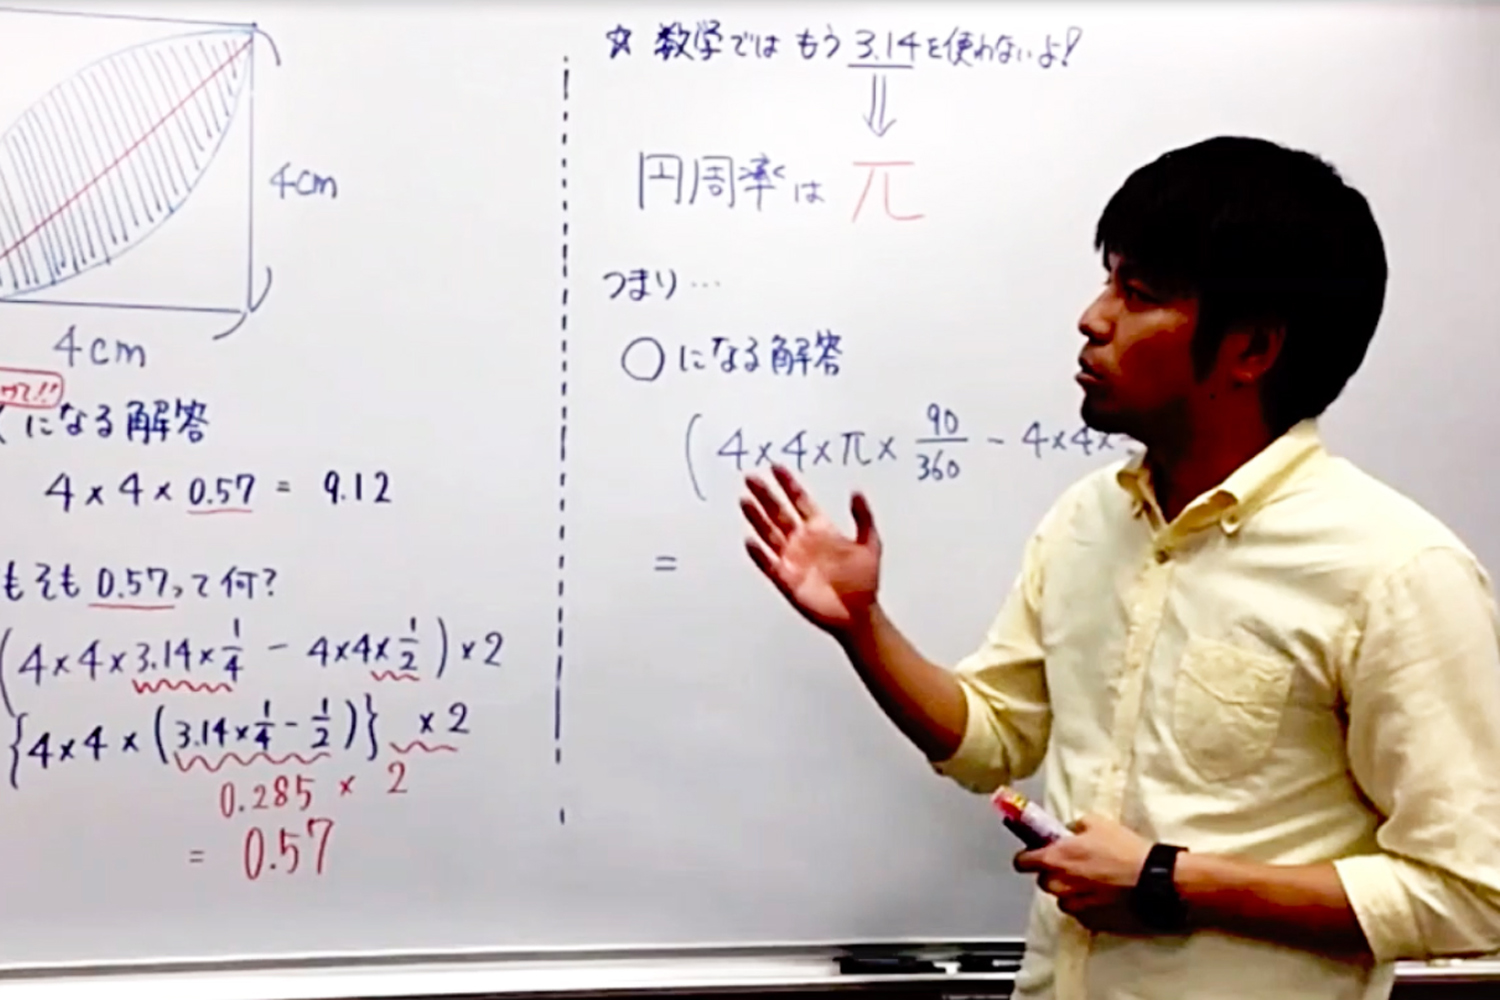 4cm
4cm
になる解答
4×4×0.57 = 9.12
もそも 0.57って何?
(4×4×3.14×1/4 - 4×4×1/2)×2
{4×4×(3.14×1/4-1/2)}×2
0.285 × 2
= 0.57
☆ 数学では もう 3.14を使わないよ!
⇓
円周率は π
つまり…
○になる解答
(4×4×π×90/360 - 4×4×
=